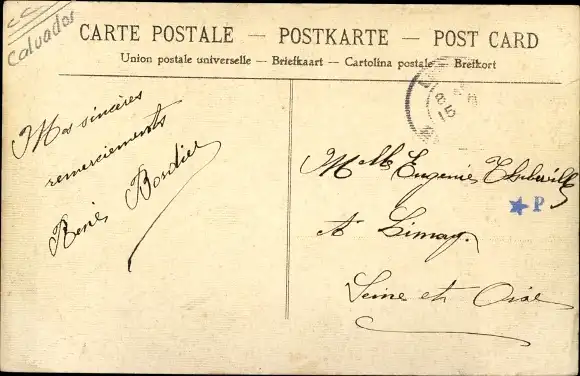 Calvados
CARTE POSTALE — POSTKARTE — POST CARD
Union postale universelle — Briefkaart — Cartolina postale — Brefkort
Mes sincères
remerciements
René Bordier
Mlle Eugénie
A Limay
Seine et Oise
P